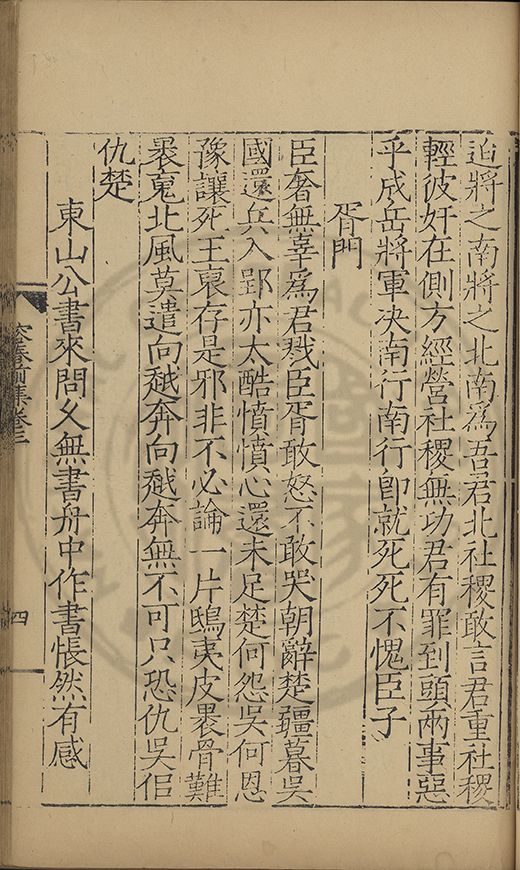 迫將之南將之北南爲吾君北社稷敢言君重社稷
輕彼奸在側方經營社稷無功君有罪到頭兩事惡
乎成岳將軍决南行南行即就死死不愧臣子
胥門
臣奢無辜爲君戮臣胥敢怒不敢哭朝辭楚疆暮吳
國還兵入郢亦太酷憤憤心還未足楚何怨吳何恩
豫讓死王裒存是邪非不必論一片鴟夷皮褁骨難
褁䰟北風莫遣向越奔向越奔無不可只恐仇吳佀
仇楚
東山公書來問久無書舟中作書悵然有感
前集卷三
四